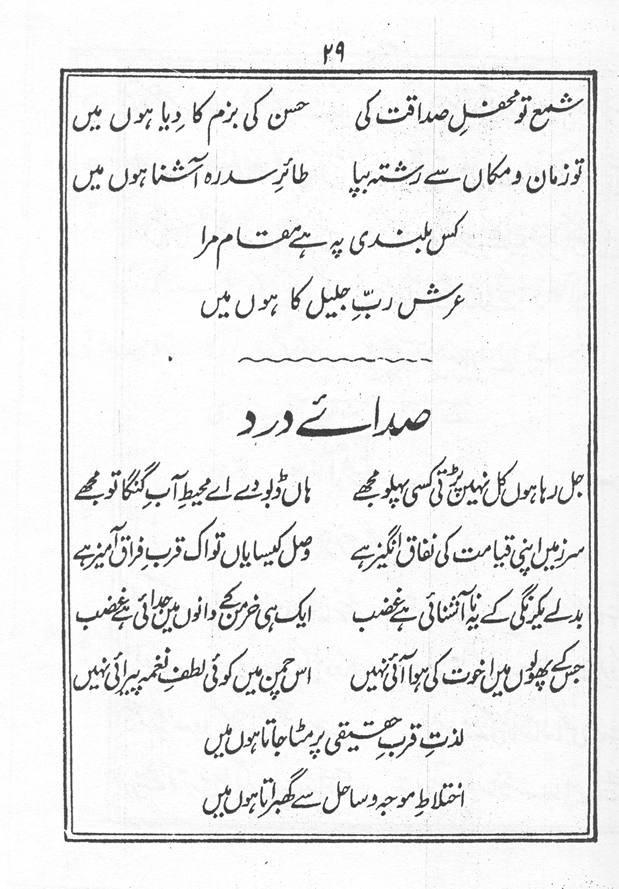 ۲۹
شمع تو محفلِ صداقت کی حسن کی بزم کا دِیا ہوں میں
تو زمان و مکاں سے رشتہ بپا طائرِ سدرہ آشنا ہوں میں
کس بلندی پہ ہے مقام مرا
عرش ربِّ جلیل کا ہوں میں
صدائے درد
جل رہا ہوں کل نہیں پڑتی کسی پہلو مجھے ہاں ڈبو دے اے محیطِ آبِ گنگا تو مجھے
سرزمیں اپنی قیامت کی نفاق انگیز ہے وصل کیسا یاں تو اک قربِ فراق آمیز ہے
بدلے یکرنگی کے یہ ناآشنائی ہے غضب ایک ہی خرمن کے دانوں میں جدائی ہے غضب
جس کے پھولوں میں اخوت کی ہوا آئی نہیں اس چمن میں کوئی لطفِ نغمہ پیرائی نہیں
لذتِ قربِ حقیقی پر مٹا جاتا ہوں میں
اختلاطِ موجہ و ساحل سے گھبراتا ہوں میں